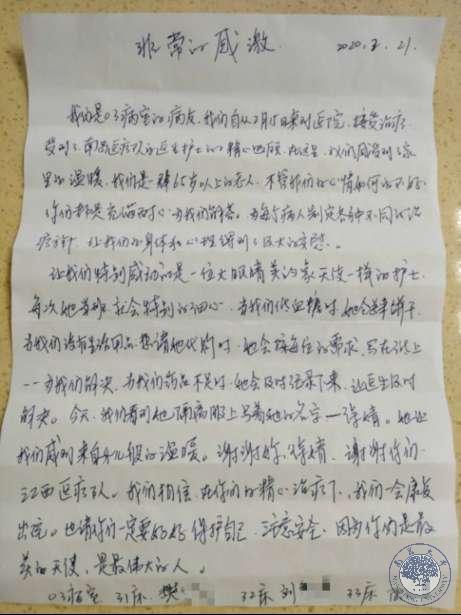 非常的感激
2020.2.21
我们是03病室的病友,我们自从2月15日来到医院,接受治疗
受到了南昌医疗队的医生护士的精心照顾,在这里,我们感受到了家
里的温暖,我们是一群65岁以上的老人,不管我们的心情如何的不好
你们都是充满耐心为我们解答。为每个病人制定各种不同的治
疗方针,让我们的身体和心理得到了很大的安慰。
让我们特别感动的是一位大眼睛美的象天使一样的护士,
每次她当班就会特别的细心,当我们低血糖时,她会送来饼干,
当我们没有生活用品想请她代购时,她会按每位的要求,写在纸上
一一为我们解决,当我们药品不足时,她会及时记录下来,让医生及时
解决。今天,我们看到她隔离服上写着她的名字—徐婧。她让
我们感到来自女儿般的温暖。谢谢你,徐婧,谢谢你们
江西医疗队。我们相信,在你们的精心治疗下,我们一会康复
出院。也请你们一定要好好保护自己,注意安全,因为你们是最
美的天使,是最伟大的人。
03病室 31床 樊 32床 刘 33床 陈